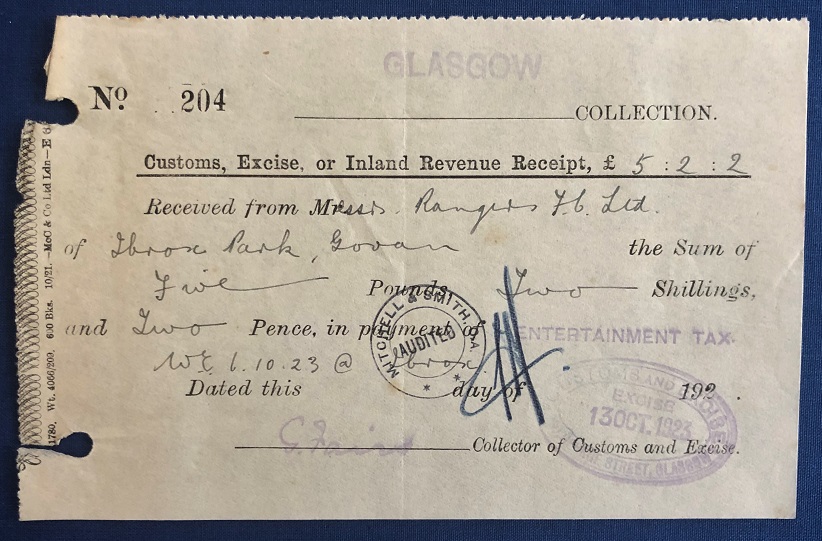 GLASGOW
No 204
COLLECTION.
Customs, Excise, or Inland Revenue Receipt, £ 5 : 2 : 2
Received from Messrs. Rangers F.C. Ltd.
of Ibrox Park, Govan the Sum of
Five Pounds, Two Shillings,
and Two Pence, in payment of ENTERTAINMENT TAX.
W.E. 6.10.23 @ Ibrox
Dated this day of 192 .
Collector of Customs and Excise.
MITCHELL & SMITH, C.A.
AUDITED
CUSTOMS AND EXCISE
13 OCT. 1923
STREET, GLASGOW
McC & Co Ltd Ldn—E 8
10/21.
600 Bks.
Wt. 4066/209.
1780.